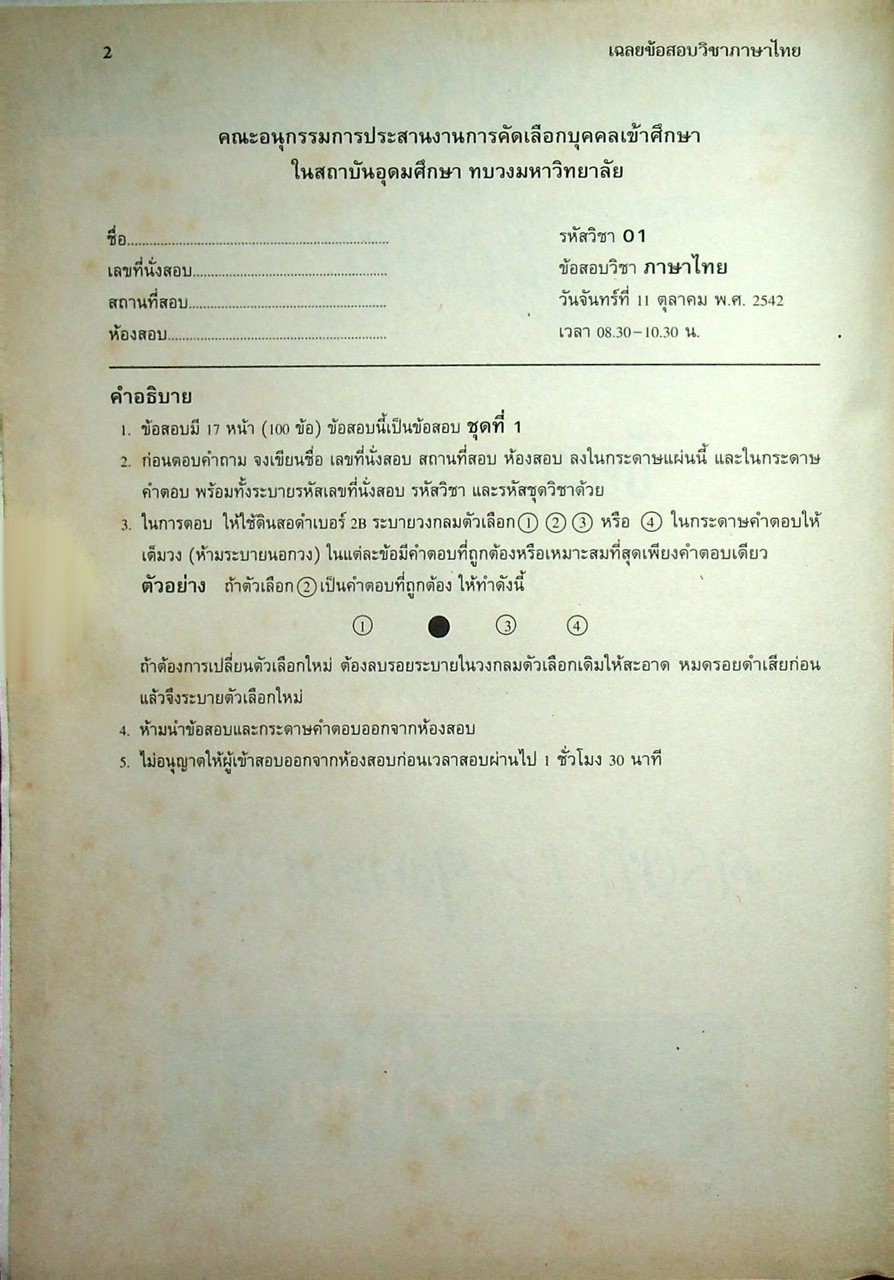 2 เฉลยข้อสอบวิชาภาษาไทย
คณะอนุกรรมการประสานงานการคัดเลือกบุคคลเข้าศึกษา
ในสถาบันอุดมศึกษา ทบวงมหาวิทยาลัย
ชื่อ...................................................................... รหัสวิชา 01
เลขที่นั่งสอบ..................................................... ข้อสอบวิชา ภาษาไทย
สถานที่สอบ...................................................... วันจันทร์ที่ 11 ตุลาคม พ.ศ. 2542
ห้องสอบ........................................................... เวลา 08.30–10.30 น.
คำอธิบาย
1. ข้อสอบมี 17 หน้า (100 ข้อ) ข้อสอบนี้เป็นข้อสอบ ชุดที่ 1
2. ก่อนตอบคำถาม จงเขียนชื่อ เลขที่นั่งสอบ สถานที่สอบ ห้องสอบ ลงในกระดาษแผ่นนี้ และในกระดาษ
คำตอบ พร้อมทั้งระบายรหัสเลขที่นั่งสอบ รหัสวิชา และรหัสชุดวิชาด้วย
3. ในการตอบ ให้ใช้ดินสอดำเบอร์ 2B ระบายวงกลมตัวเลือก ① ② ③ หรือ ④ ในกระดาษคำตอบให้
เต็มวง (ห้ามระบายนอกวง) ในแต่ละข้อมีคำตอบที่ถูกต้องหรือเหมาะสมที่สุดเพียงคำตอบเดียว
ตัวอย่าง ถ้าตัวเลือก ② เป็นคำตอบที่ถูกต้อง ให้ทำดังนี้
① ● ③ ④
ถ้าต้องการเปลี่ยนตัวเลือกใหม่ ต้องลบรอยระบายในวงกลมตัวเลือกเดิมให้สะอาด หมดรอยดำเสียก่อน
แล้วจึงระบายตัวเลือกใหม่
4. ห้ามนำข้อสอบและกระดาษคำตอบออกจากห้องสอบ
5. ไม่อนุญาตให้ผู้เข้าสอบออกจากห้องสอบก่อนเวลาสอบผ่านไป 1 ชั่วโมง 30 นาที